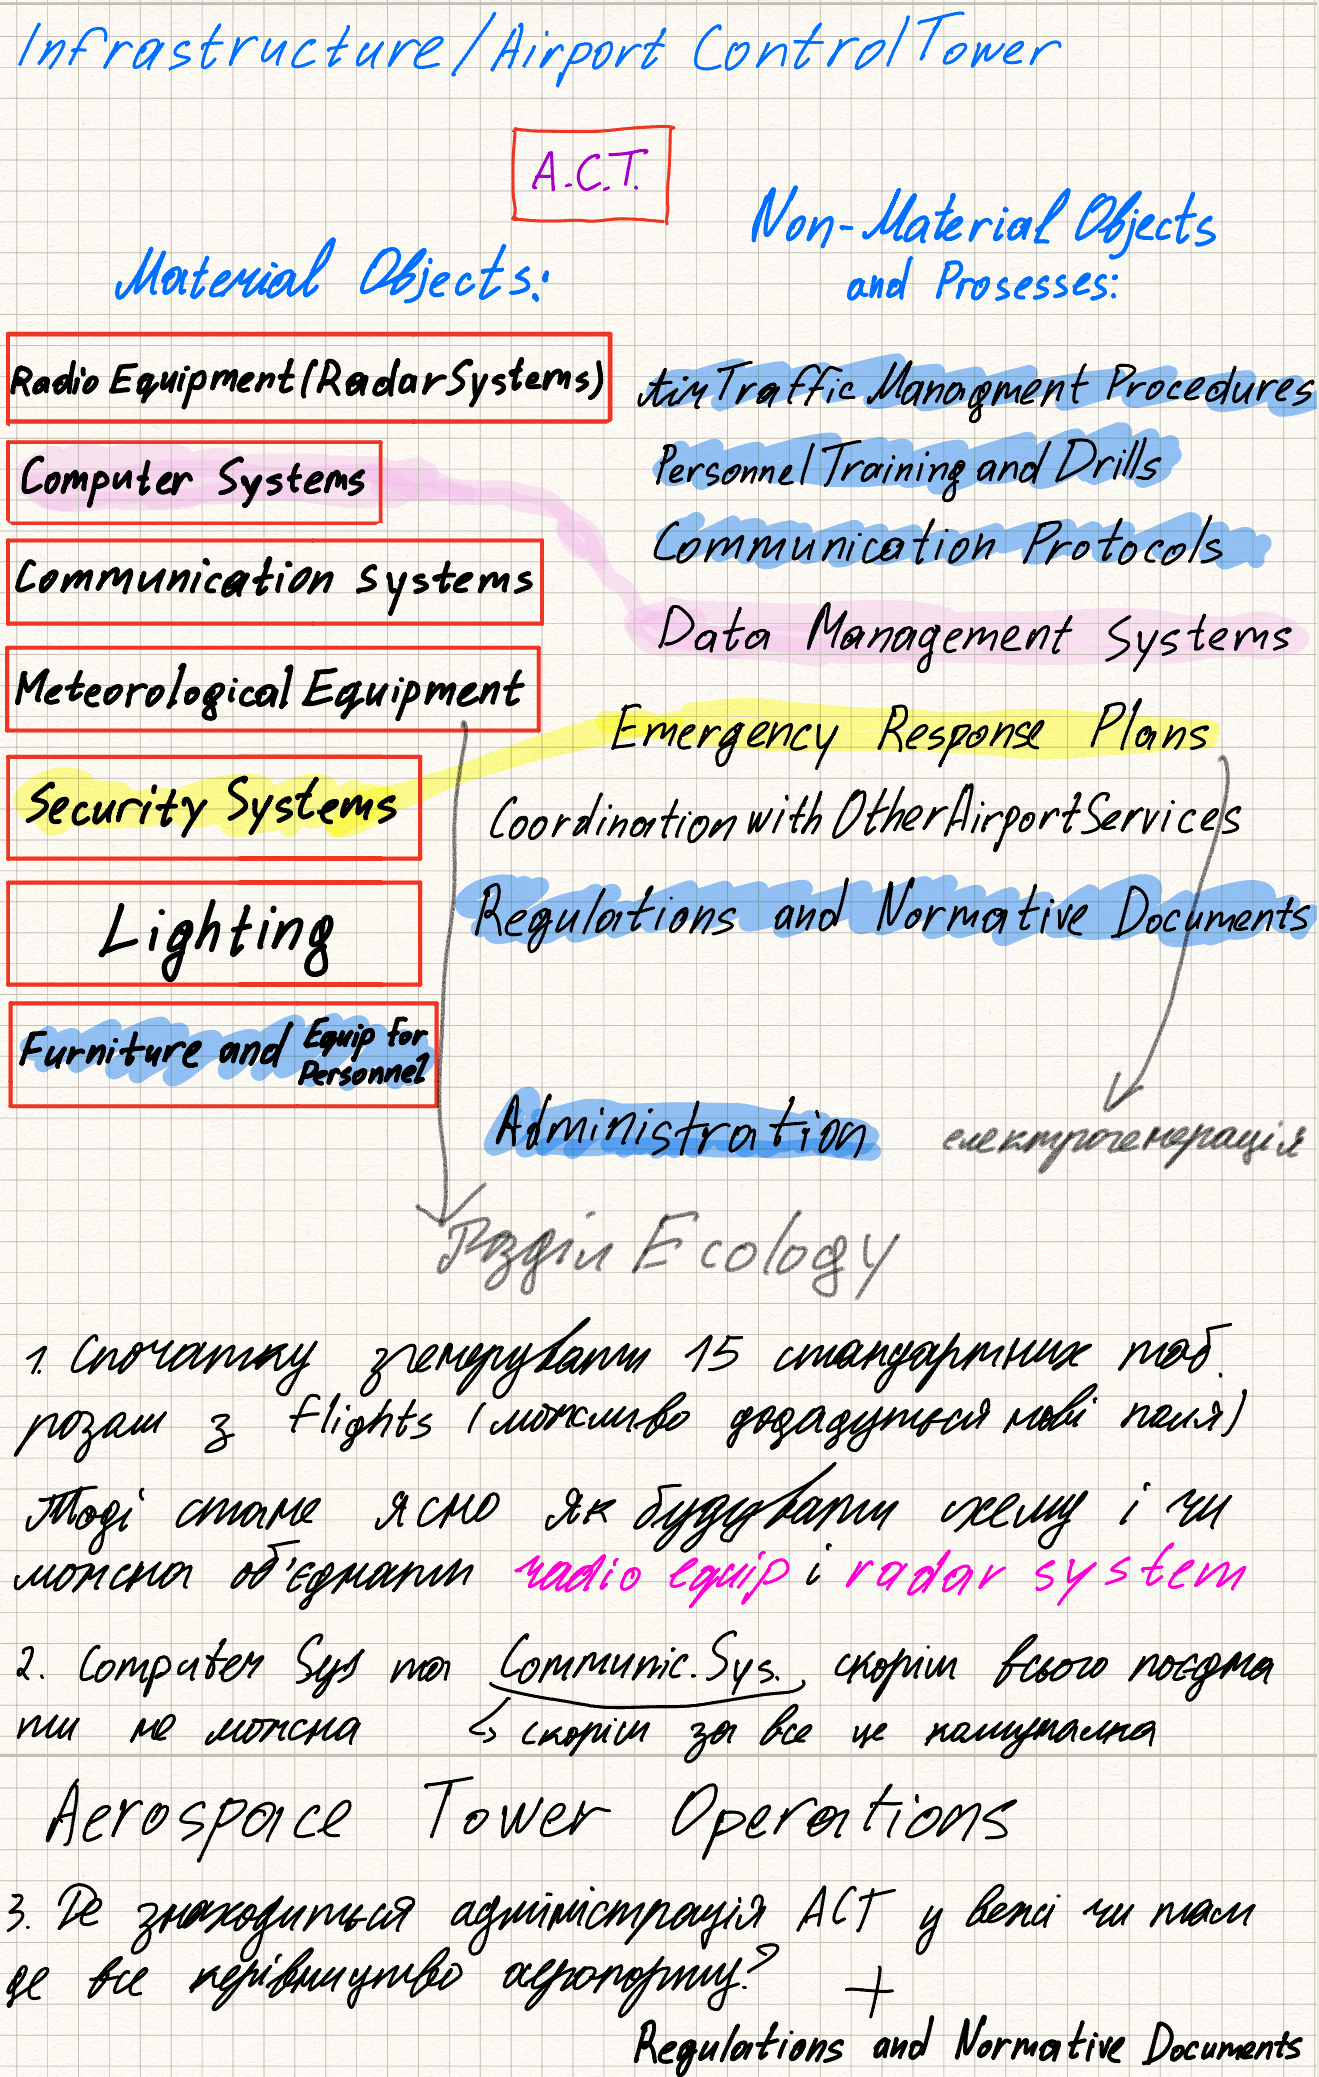 Infrastructure/Airport Control Tower
A.C.T.
Material Objects:
Radio Equipment (Radar Systems)
Computer Systems
Communication Systems
Meteorological Equipment
Security Systems
Lighting
Furniture and Equip for Personnel
Non-Material Objects
and Prosesses:
Air Traffic Managment Procedures
Personnel Training and Drills
Communication Protocols
Data Management Systems
Emergency Response Plans
Coordination with Other Airport Services
Regulations and Normative Documents
Administration
електрогенерація
Розділ Ecology
1. Спочатку згенерувати 15 стандартних таб.
розаш з flights (можливо дододадуться нові поля)
Тоді стане ясно як будувати схему і чи
можна об'єднати radio equip і radar system
2. Computer Sys та Communic. Sys. скоріш всього поєдна
ти не можна ↳ скоріш за все це
Aerospace Tower Operations
3. Де знаходиться адміністрація ACT у вежі чи там
де все керівництво аеропорту? +
Regulations and Normative Documents